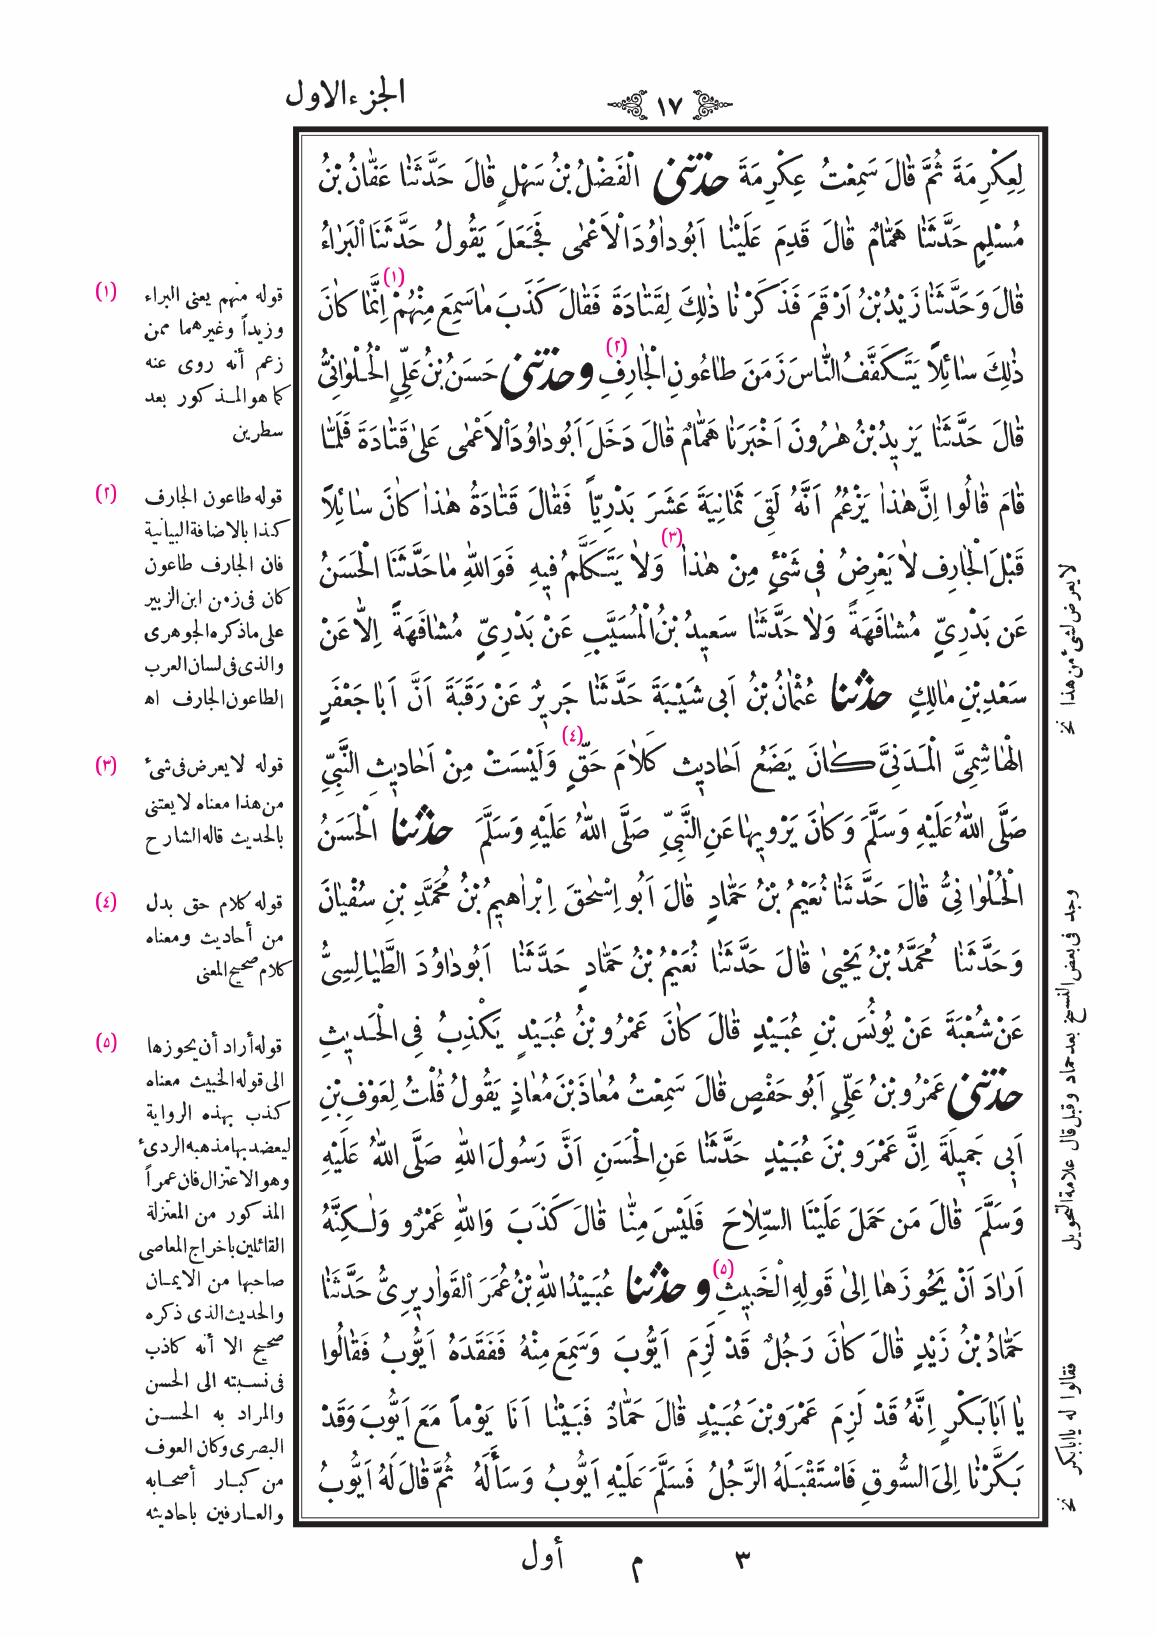 الجزء الاول
١٧
لِعِكْرِمَةَ ثُمَّ قَالَ سَمِعْتُ عِكْرِمَةَ حدثنى الْفَضْلُ بْنُ سَهْلٍ قَالَ حَدَّثَنَا عَفَّانُ بْنُ
مُسْلِمٍ حَدَّثَنَا هَمَّامٌ قَالَ قَدِمَ عَلَيْنَا اَبُو دَاوُدَ الْاَعْمٰى فَجَعَلَ يَقُولُ حَدَّثَنَا الْبَرَاءُ
قَالَ وَحَدَّثَنَا زَيْدُ بْنُ اَرْقَمَ فَذَكَرْنَا ذٰلِكَ لِقَتَادَةَ فَقَالَ كَذَبَ مَا سَمِعَ مِنْهُمْ (١) اِنَّمَا كَانَ
ذٰلِكَ سَائِلاً يَتَكَفَّفُ النَّاسَ زَمَنَ طَاعُونِ الْجَارِفِ (٢) وحدثنى حَسَنُ بْنُ عَلِىٍّ الْحُلْوَانِىُّ
قَالَ حَدَّثَنَا يَزِيدُ بْنُ هٰرُونَ اَخْبَرَنَا هَمَّامٌ قَالَ دَخَلَ اَبُو دَاوُدَ الْاَعْمٰى عَلىٰ قَتَادَةَ فَلَمَّا
قَامَ قَالُوا اِنَّ هٰذَا يَزْعُمُ اَنَّهُ لَقِىَ ثَمَانِيَةَ عَشَرَ بَدْرِيّاً فَقَالَ قَتَادَةُ هٰذَا كَانَ سَائِلاً
قَبْلَ الْجَارِفِ لَا يَعْرِضُ فِى شَىْءٍ مِنْ هٰذَا (٣) وَلَا يَتَكَلَّمُ فِيهِ فَوَاللّٰهِ مَا حَدَّثَنَا الْحَسَنُ
عَنْ بَدْرِىٍّ مُشَافَهَةً وَلَا حَدَّثَنَا سَعِيدُ بْنُ الْمُسَيَّبِ عَنْ بَدْرِىٍّ مُشَافَهَةً اِلَّا عَنْ
سَعْدِ بْنِ مَالِكٍ حدثنا عُثْمَانُ بْنُ اَبِى شَيْبَةَ حَدَّثَنَا جَرِيرٌ عَنْ رَقَبَةَ اَنَّ اَبَا جَعْفَرٍ
الْهَاشِمِىَّ الْمَدَنِىَّ كَانَ يَضَعُ اَحَادِيثَ كَلَامَ حَقٍّ (٤) وَلَيْسَتْ مِنْ اَحَادِيثِ النَّبِىِّ
صَلَّى اللّٰهُ عَلَيْهِ وَسَلَّمَ وَكَانَ يَرْوِيهَا عَنِ النَّبِىِّ صَلَّى اللّٰهُ عَلَيْهِ وَسَلَّمَ حدثنا الْحَسَنُ
الْحُلْوَانِىُّ قَالَ حَدَّثَنَا نُعَيْمُ بْنُ حَمَّادٍ قَالَ اَبُو اِسْحٰقَ اِبْرَاهِيمُ بْنُ مُحَمَّدِ بْنِ سُفْيَانَ
وَحَدَّثَنَا مُحَمَّدُ بْنُ يَحْيىٰ قَالَ حَدَّثَنَا نُعَيْمُ بْنُ حَمَّادٍ حَدَّثَنَا اَبُو دَاوُدَ الطَّيَالِسِىُّ
عَنْ شُعْبَةَ عَنْ يُونُسَ بْنِ عُبَيْدٍ قَالَ كَانَ عَمْرُو بْنُ عُبَيْدٍ يَكْذِبُ فِى الْحَدِيثِ
حدثنى عَمْرُو بْنُ عَلِىٍّ اَبُو حَفْصٍ قَالَ سَمِعْتُ مُعَاذَ بْنَ مُعَاذٍ يَقُولُ قُلْتُ لِعَوْفِ بْنِ
اَبِى جَمِيلَةَ اِنَّ عَمْرَو بْنَ عُبَيْدٍ حَدَّثَنَا عَنِ الْحَسَنِ اَنَّ رَسُولَ اللّٰهِ صَلَّى اللّٰهُ عَلَيْهِ
وَسَلَّمَ قَالَ مَنْ حَمَلَ عَلَيْنَا السِّلَاحَ فَلَيْسَ مِنَّا قَالَ كَذَبَ وَاللّٰهِ عَمْرٌو وَلٰكِنَّهُ
اَرَادَ اَنْ يَحُوزَهَا اِلىٰ قَوْلِهِ الْخَبِيثِ (٥) و حدثنا عُبَيْدُ اللّٰهِ بْنُ عُمَرَ الْقَوَارِيرِىُّ حَدَّثَنَا
حَمَّادُ بْنُ زَيْدٍ قَالَ كَانَ رَجُلٌ قَدْ لَزِمَ اَيُّوبَ وَسَمِعَ مِنْهُ فَفَقَدَهُ اَيُّوبُ فَقَالُوا
يَا اَبَا بَكْرٍ اِنَّهُ قَدْ لَزِمَ عَمْرَو بْنَ عُبَيْدٍ قَالَ حَمَّادٌ فَبَيْنَا اَنَا يَوْماً مَعَ اَيُّوبَ وَقَدْ
بَكَّرْنَا اِلىَ السُّوقِ فَاسْتَقْبَلَهُ الرَّجُلُ فَسَلَّمَ عَلَيْهِ اَيُّوبُ وَسَأَلَهُ ثُمَّ قَالَ لَهُ اَيُّوبُ
(١) قوله منهم يعنى البراء
وزيداً وغيرهما ممن
زعم أنه روى عنه
كما هو المذكور بعد
سطرين
(٢) قوله طاعون الجارف
كذا بالاضافة البيانية
فان الجارف طاعون
كان فى زمن ابن الزبير
على ما ذكره الجوهرى
والذى فى لسان العرب
الطاعون الجارف اه
(٣) قوله لا يعرض فى شىء
من هذا معناه لا يعتنى
بالحديث قاله الشارح
(٤) قوله كلام حق بدل
من أحاديث ومعناه
كلام صحيح المعنى
(٥) قوله أراد أن يحوزها
الى قوله الخبيث معناه
كذب بهذه الرواية
ليعضد بها مذهبه الردىء
وهو الاعتزال فان عمراً
المذكور من المعتزلة
القائلين باخراج المعاصى
صاحبها من الايمان
والحديث الذى ذكره
صحيح الا أنه كاذب
فى نسبته الى الحسن
والمراد به الحسن
البصرى وكان العوف
من كبار أصحابه
والعارفين باحاديثه
لا يعرض لشىء من هذا نخ
وجد فى بعض النسخ بعد حماد وقبل قال علامة التحويل
فقالوا له يا ابا بكر نخ
٣ م أول